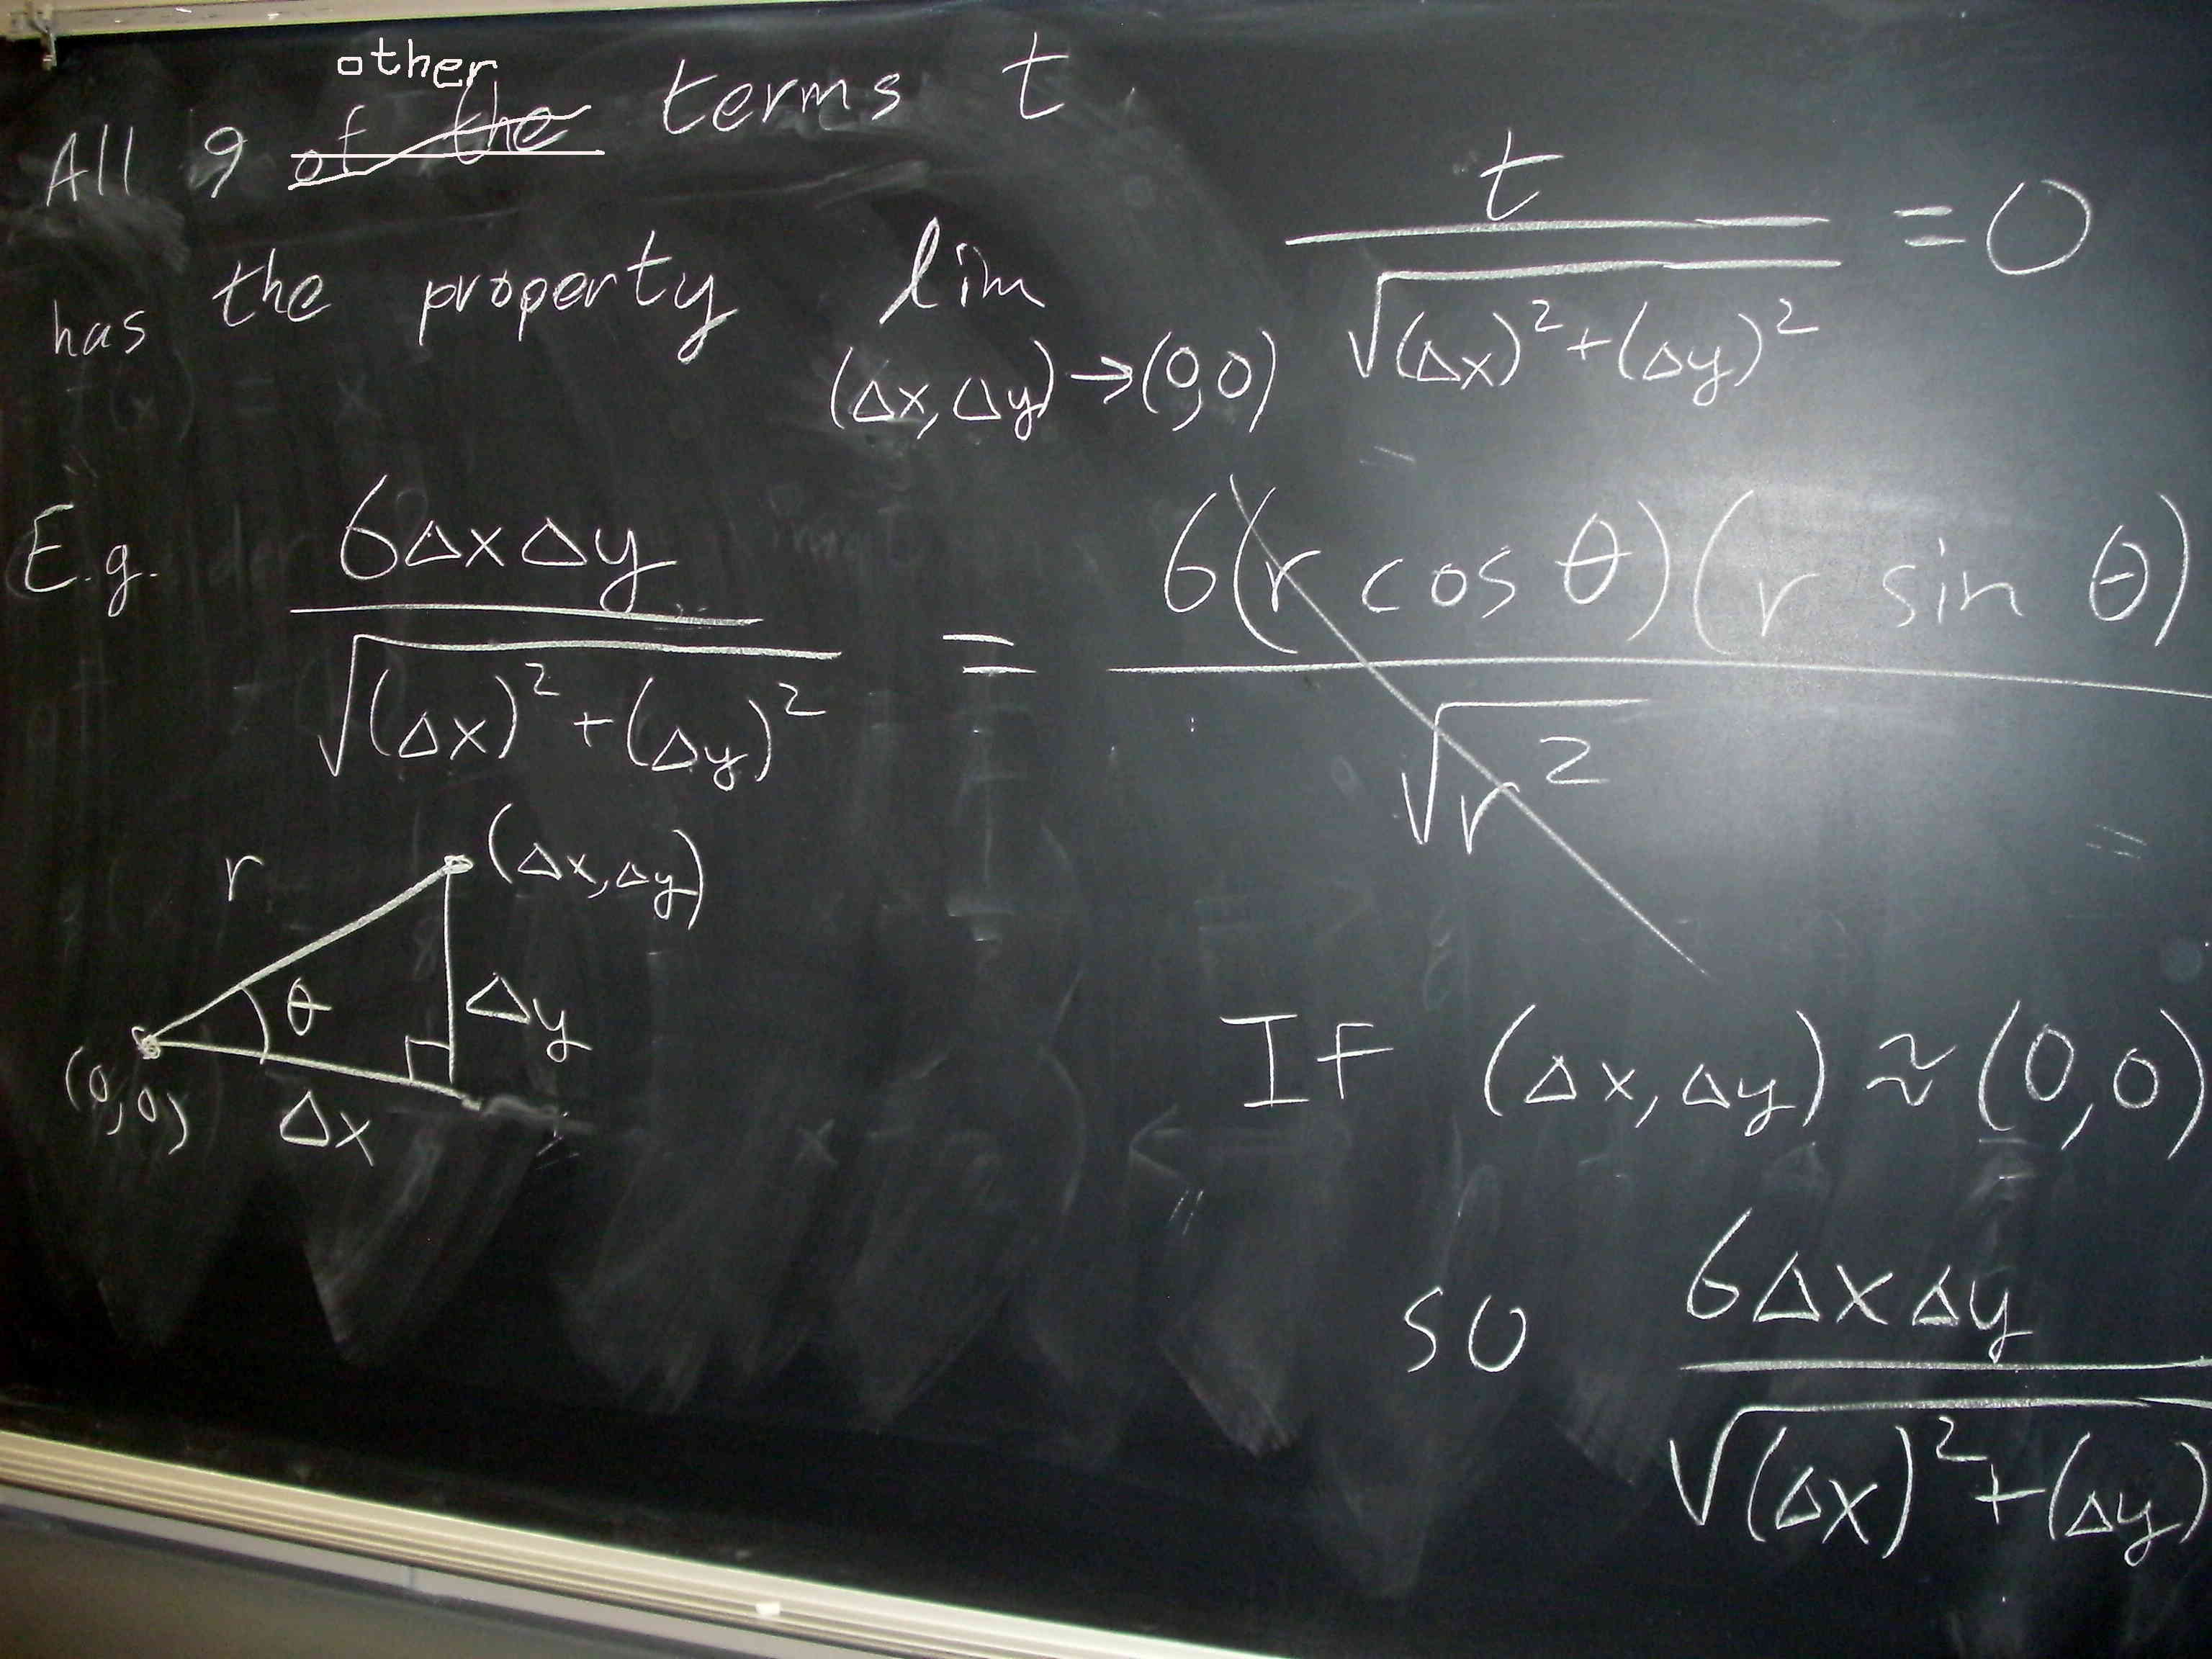 All 9 ~~of the~~ other terms t
has the property lim t / √((Δx)²+(Δy)²) = 0
(Δx, Δy) → (0,0)
E.g. 6ΔxΔy / √((Δx)²+(Δy)²) = 6(r cos θ)(r sin θ) / √r²
r
(Δx, Δy)
θ
Δy
(0,0)
Δx
If (Δx, Δy) ≈ (0,0)
so 6ΔxΔy / √((Δx)²+(Δy)